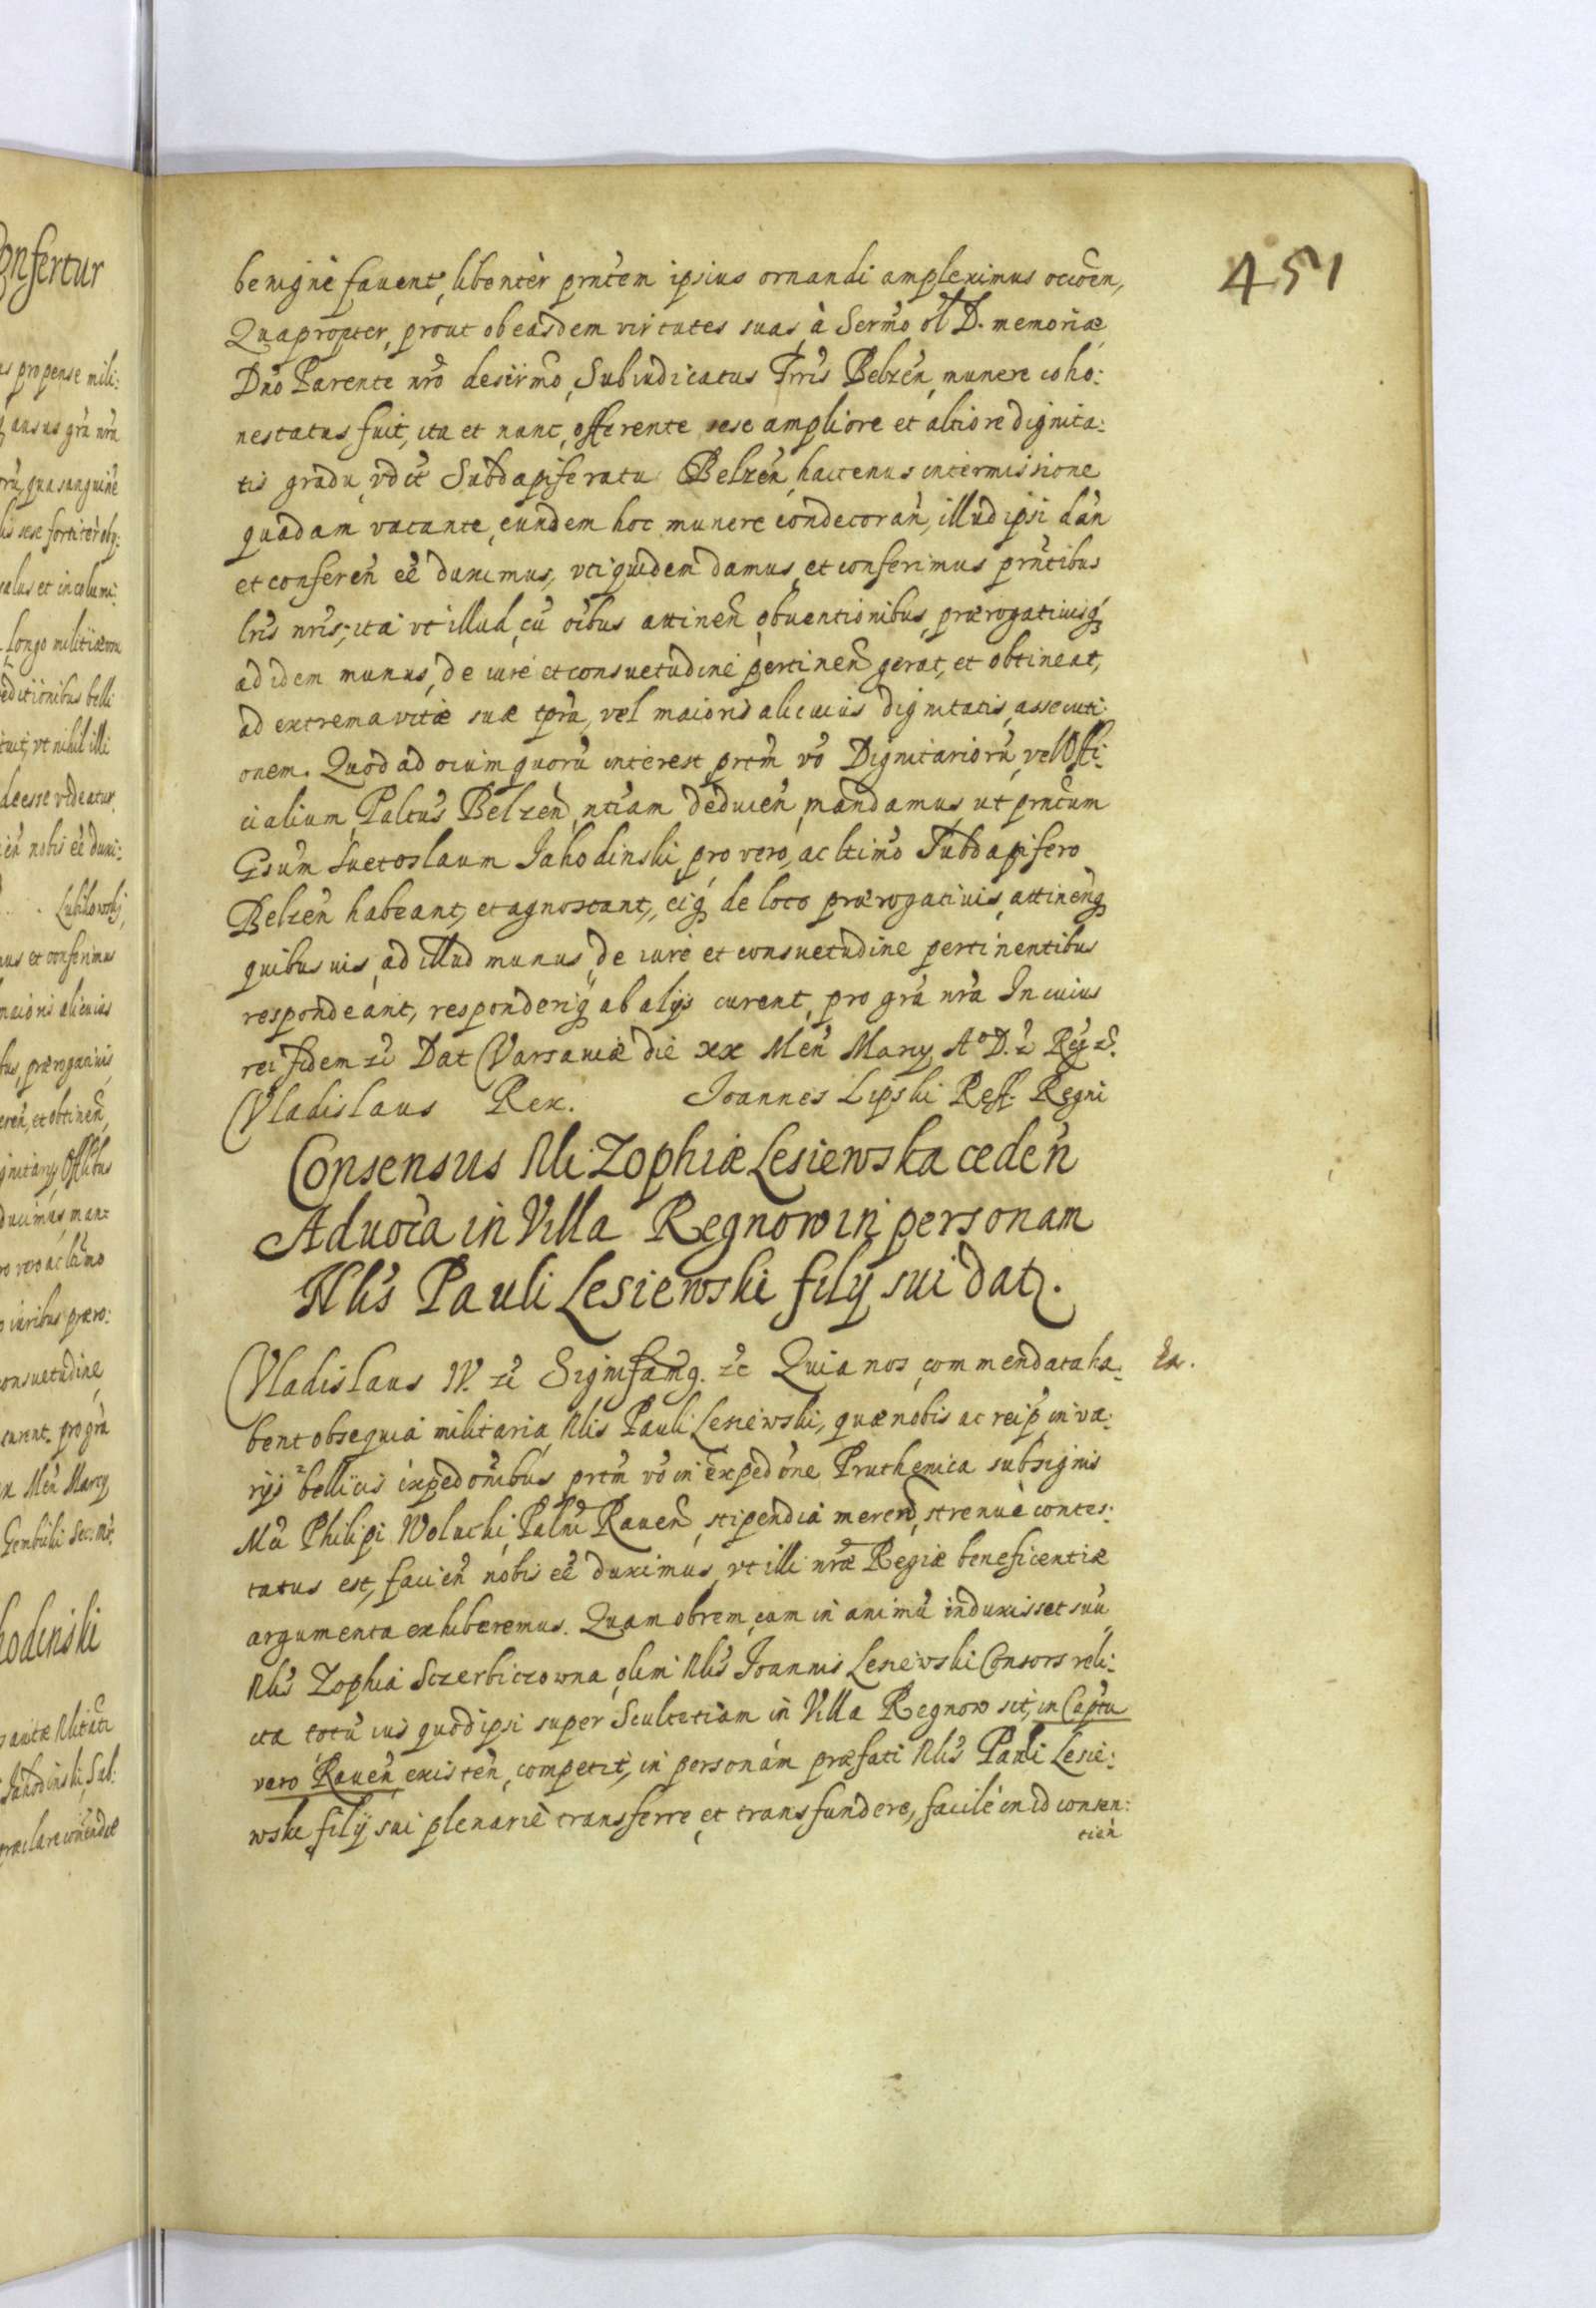 451
benignè fauent, libentèr prntem ipsius ornandi amplexímus occōen,
Quapropter, prout ob easdem virtutes suas, à Sermo ol D. memoriæ
Dno Parente nrō desirmo, Subiudicatus Trris Belzen, munere coho:
nestatus fuit, ita et nunc, offerente sese ampliore et altiore dignita:
tis gradu, vdct Subdapiferatu Belzen, hactenus intermissione
quadam vacante, eundem hoc munere condecoran, illud ipsi dan
et conferen eē duximus, vti quidem damus, et conferimus prntibus
lris nris, ita vt illud, cū oībus attinen obuentionibus, prærogatiuisq
ad idem munus, de iure et consuetudine pertinen gerat, et obtineat,
ad extrema vitæ suæ tpra, vel maioris alicuius dignitatis, assecuti:
onem. Quod ad oium quorū interest, prtm vō Dignitariorū, vel Offi:
cialium Paltus Belzen, ntiam deducen, mandamus, ut prntum
Gsum Suetoslaum Jahodinski, pro vero, ac ltimo Subdapifero
Belzen habeant, et agnoscant, eiq de loco prærogatiuis, attinenq
quibusuis, ad illud munus, de iure et consuetudine pertinentibus
respondeant, responderiq ab alijs curent, pro grā nrā In cuius
rei fidem zc Dat Varsauiæ die xx Men Marty Aº D. z Rg z.
Vladislaus Rex. Joannes Lipski Reff. Regni
Consensus Nli Zophiæ Lesiewska ceden
Aduoca in Villa Regnow in personam
Nlis Pauli Lesiewski filij sui dat.
Vladislaus IV. zc Signifamq. zc Quia nos, commendata ha: Ex.
bent obsequia militaria, Nlis Pauli Lesiewski, quæ nobis ac reip, in va:
rijs bellicis expedonibus prtm vō in expedone Pruthenica sub signis
Mci Philipi Wolucki, Palni Rauen, stipendia meren, strenuè contes:
tatus est, facien nobis eē duximus, vt illi nræ Regiæ beneficentiæ
argumenta exhiberemus. Quam obrem, cum in animū induxisset suū
Nlis Zophia Sczerbiczowna, olim Nlis Joannis Lesiewski Consors reli:
cta totū ius quod ipsi super Scultetiam in Villa Regnow sit, in Captu
vero Rauen existen, competit, in personam præfati Nlis Pauli Lesie:
wski filij sui plenariè transferre et transfundere, facilè in id consen:
tien